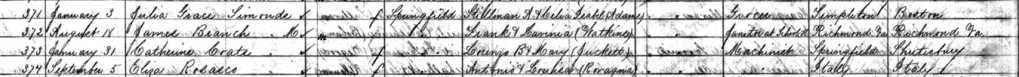 371 January 3 Julia Grace Simonds f Springfield Stillman A & Celia Isabl (Adams) Grocer Templeton Boston
372 August 18 James Branch M " Frank & Lavinia (Watkins) " Janitor at School St Richmond Va. Richmond Va.
373 January 31 Catherine Coats f " Lorenzo B & Mary (Puckett) " Machinist Springfield Shutesbury
374 September 5 Eliza Rosasco f " Antonio & (Rovagna) " Italy Italy